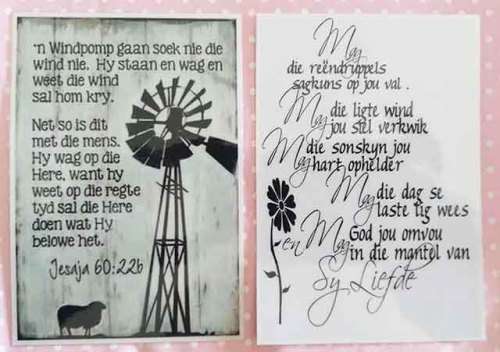 'n Windpomp gaan soek nie die
wind nie. Hy staan en wag en
weet die wind
sal hom kry.
Net so is dit
met die mens.
Hy wag op die
Here, want hy
weet op die regte
tyd sal die Here
doen wat Hy
belowe het.
Jesaja 60:22b
Mag
die reëndruppels
sagkuns op jou val.
Mag die ligte wind
jou stel verkwik
Mag die sonskyn jou
hart ophelder
Mag die dag se
laste lig wees
en Mag God jou omvou
in die mantel van
Sy Liefde